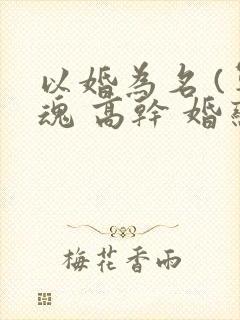 以婚為名(
魂 高幹 婚
梅花香雨